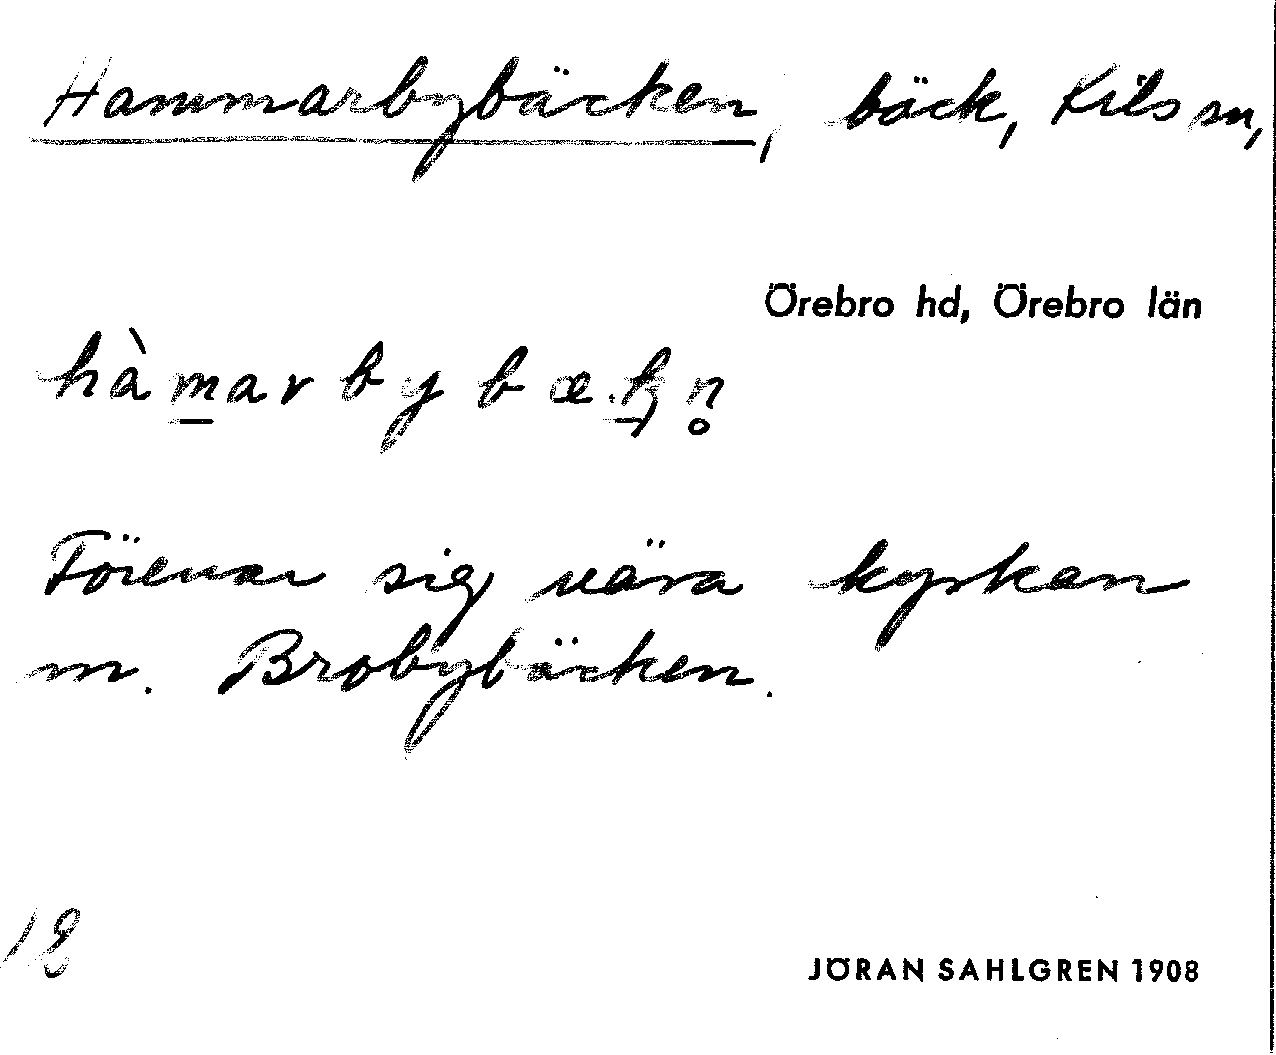 Hammarbybäcken, bäck, Kils sn,
Örebro hd, Örebro län
hàm̲arbybæk̲n̥
Förenar sig nära kyrkan
m. Brobybäcken.
12
JÖRAN SAHLGREN 1908